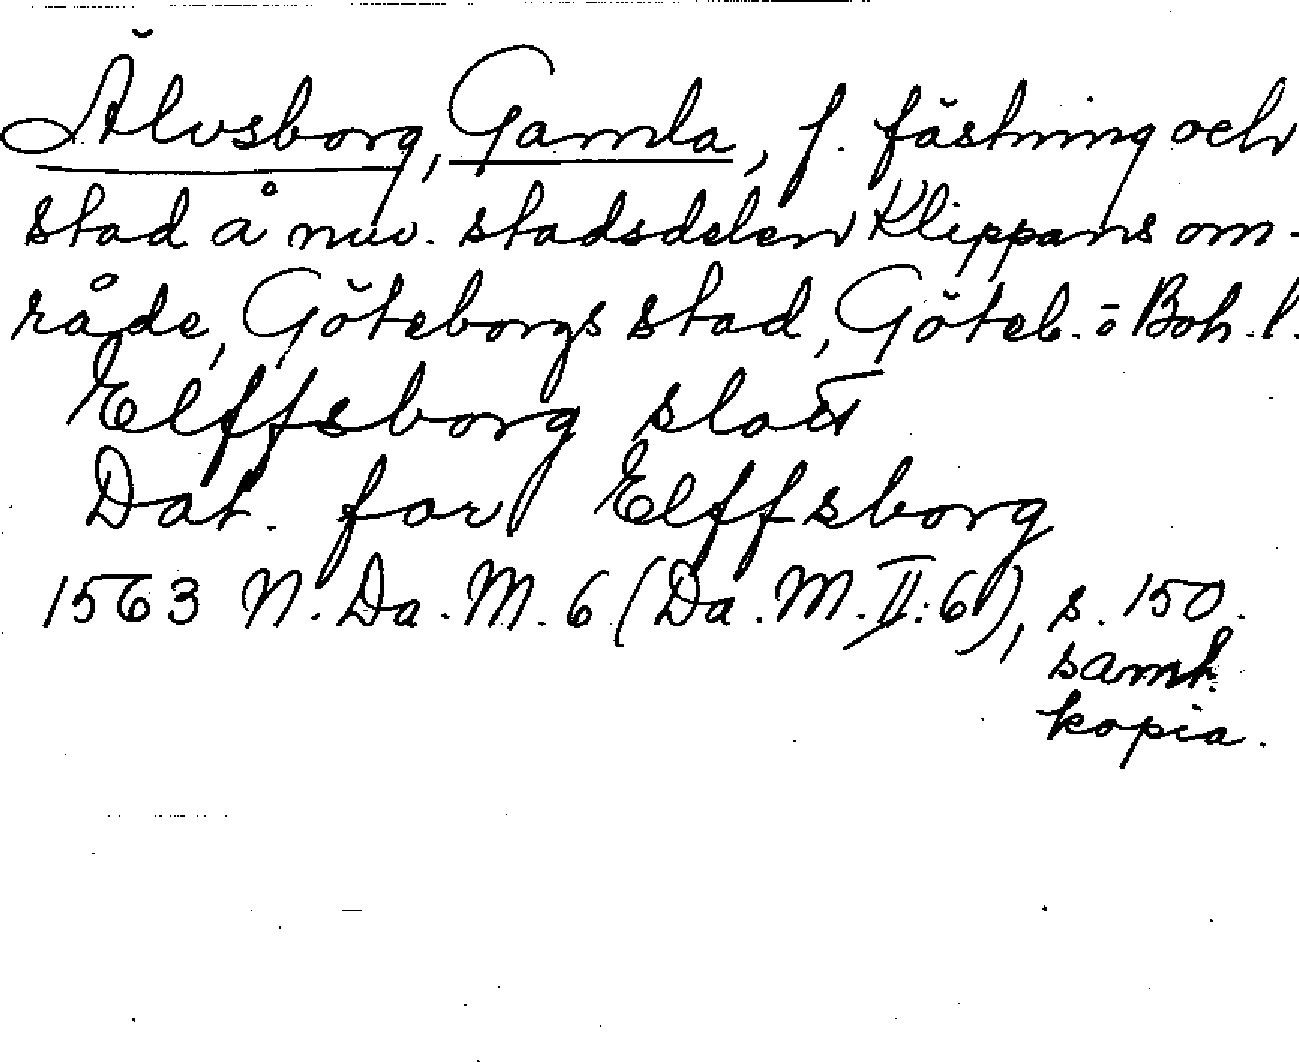 Älvsborg, Gamla, f. fästning och
stad å nuv. stadsdelen Klippans om-
råde, Göteborgs stad, Göteb. o Boh. l.
Elffsborg slott
Dat. for Elffsborg
1563 N. Da. M. 6 (Da. M. II: 6), s. 150.
samt.
kopia.